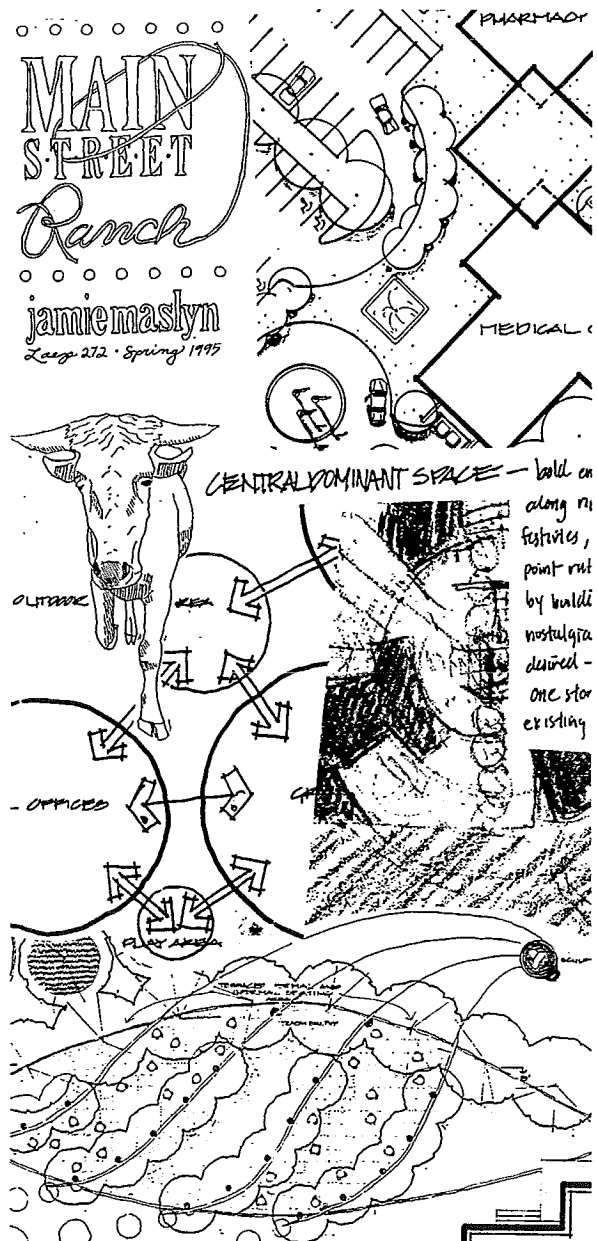 MAIN
S·T·R·E·E·T
Ranch
jamie maslyn
Laep 272 · Spring 1995
PHARMACY
MEDICAL
CENTRAL DOMINANT SPACE — bold en
along
festivies,
point
by buildi
nostalgia
desired -
one stor
existing
OUTDOOR AREA
- OFFICES
PLAY AREA